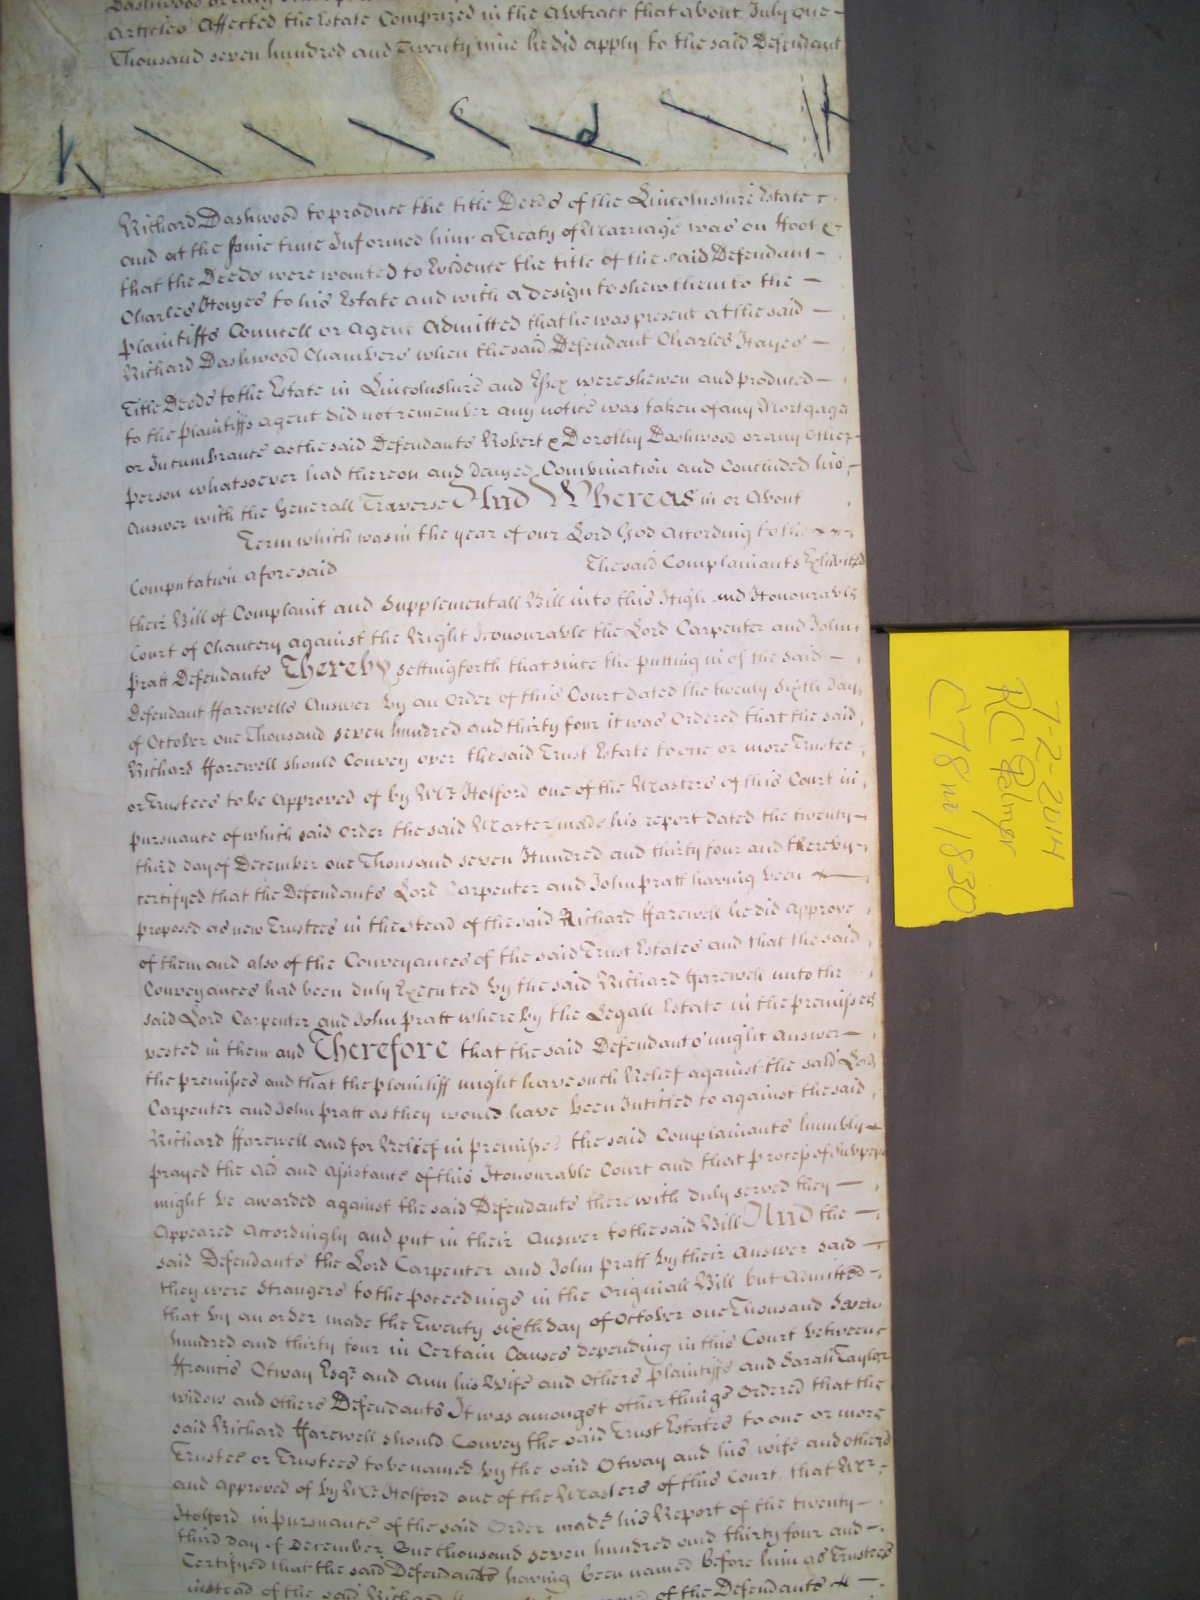 Dashwood or any
Articles Affected the Estate Comprized in the Abstract that about July one
Thousand seven hundred and Twenty nine he did apply to the said Defendant
Richard Dashwood to produce the title Deeds of the Lincolnshire Estate
and at the same time Informed him a Treaty of Marriage was on Foot &
that the Deeds were wanted to Evidence the title of the said Defendant
Charles Hayes to his Estate and with a design to shew them to the
plaintiffs Councell or Agent Admitted that he was present at the said
Richard Dashwood Chambers when the said Defendant Charles Hayes
Title Deeds to the Estate in Lincolnshire and Essex were shewen and produced
to the plaintiffs agent did not remember any notice was taken of any Mortgage
or Incumbrance as the said Defendants Robert & Dorothy Dashwood or any other
person whatsoever had thereon and denyed Combination and Concluded his
Answer with the Generall Traverse And Whereas in or About
Term which was in the year of our Lord God According to the
Computation aforesaid The said Complainants Exhibited
their Bill of Complaint and Supplementall Bill into this High and Honourable
Court of Chancery against the Right Honourable the Lord Carpenter and John
Pratt Defendants Thereby setting forth that since the putting in of the said
Defendant Harewells Answer by an Order of this Court dated the twenty Sixth day
of October one Thousand seven hundred and thirty four it was Ordered that the said
Richard Harewell should Convey over the said Trust Estate to one or more Trustee
or Trustees to be Approved of by Mr. Holford one of the Masters of this Court in
pursuance of which said Order the said Master made his report dated the twenty
third day of December one Thousand seven Hundred and thirty four and thereby
certifyed that the Defendants Lord Carpenter and John Pratt having been
proposed as new Trustees in the stead of the said Richard Harewell he did Approve
of them and also of the Conveyances of the said Trust Estates and that the said
Conveyances had been duly Executed by the said Richard Harewell unto the
said Lord Carpenter and John Pratt whereby the Legall Estate in the premisses
vested in them and Therefore that the said Defendants might Answer
the premisses and that the plaintiff might have such Relief against the said Lord
Carpenter and John Pratt as they would have been Intitled to against the said
Richard Harewell and for Releif in premisses the said Complainants humbly
prayed the Aid and Assistance of this Honourable Court and that process of Subpena
might be awarded against the said Defendants therewith duly served they
Appeared Accordingly and put in their Answer to the said Bill And the
said Defendants the Lord Carpenter and John Pratt by their Answer said
they were Strangers to the poceedings in the Originall Bill but Admitted
that by an order made the Twenty sixth day of October one Thousand Seven
hundred and thirty four in Certain Causes depending in this Court between
Francis Otway Esqr. and Ann his Wife and others Plaintiffs and Sarah Taylor
widow and others Defendants It was amongst other things Ordered that the
said Richard Harewell should Convey the said Trust Estates to one or more
Trustee or Trustees to be named by the said Otway and his wife and others
and approved of by Mr. Holford one of the Masters of this Court that Mr.
Holford in pursuance of the said Order made his Report of the twenty
third day of December One thousand seven hundred and thirty four and
Certifyed that the said Defendants having been named before him as Trustees
instead of the said Richard of the Defendants
7-2-2014
RC Gelmer
C78 no 1830